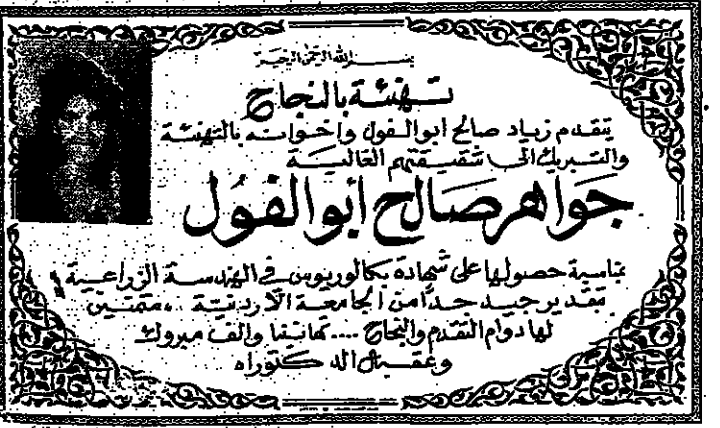 بسم الله الرحمن الرحيم
تهنئة بالنجاح
يتقدم زياد صالح ابو الفول واخواته بالتهنئة
والتبريك الى شقيقتهم الغالية
جواهر صالح أبو الفول
بمناسبة حصولها على شهادة بكالوريوس في الهندسة الزراعية
بتقدير جيد جداً من الجامعة الأردنية .. متمنين
لها دوام التقدم والنجاح .... تهانينا والف مبروك
وعقبال الدكتوراه